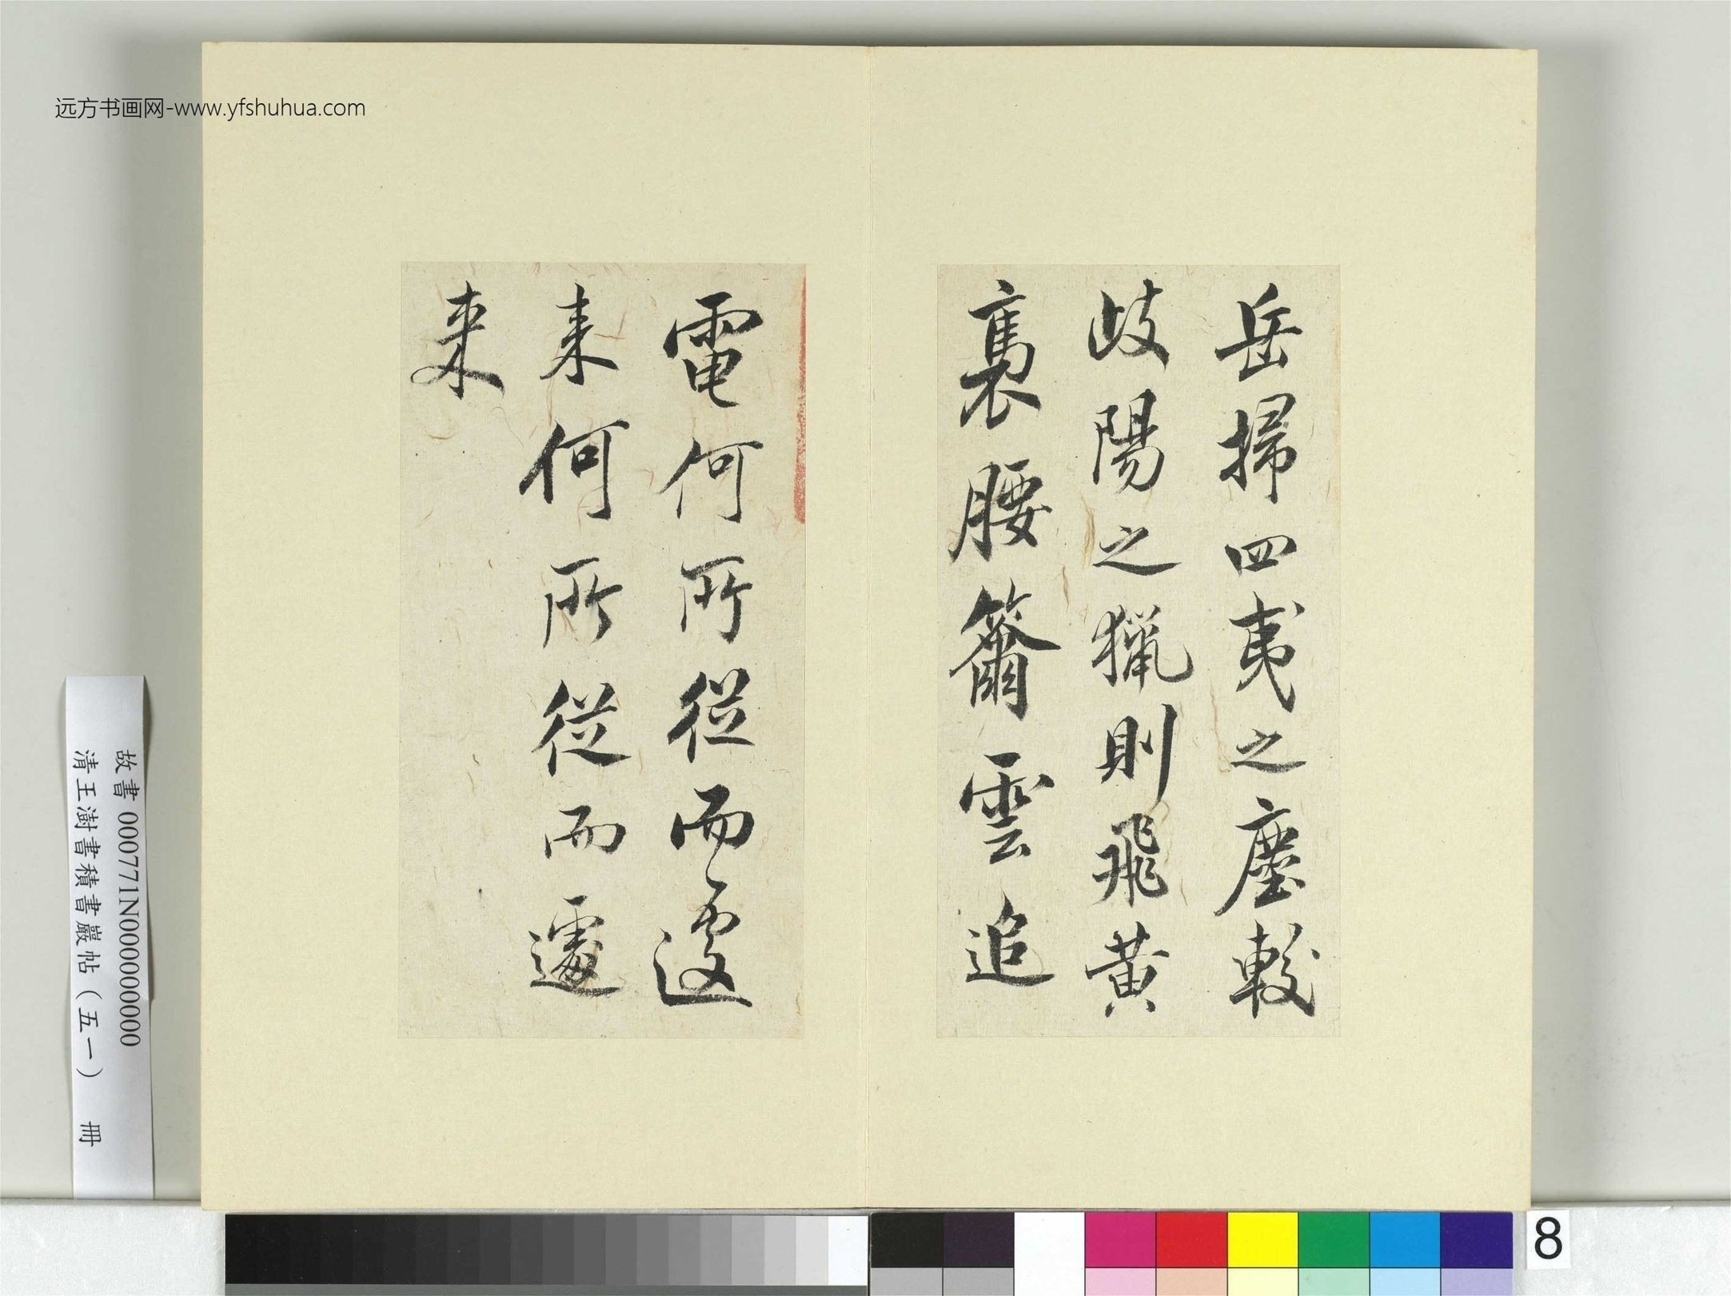 岳掃四夷之塵較
岐陽之獵則飛黃
褭腰籋雲追
電何所從而遽
来何所從而遽
来
远方书画网-www.yfshuhua.com
故書 000771N000000000
清王澍書積書巖帖(五一) 冊
8